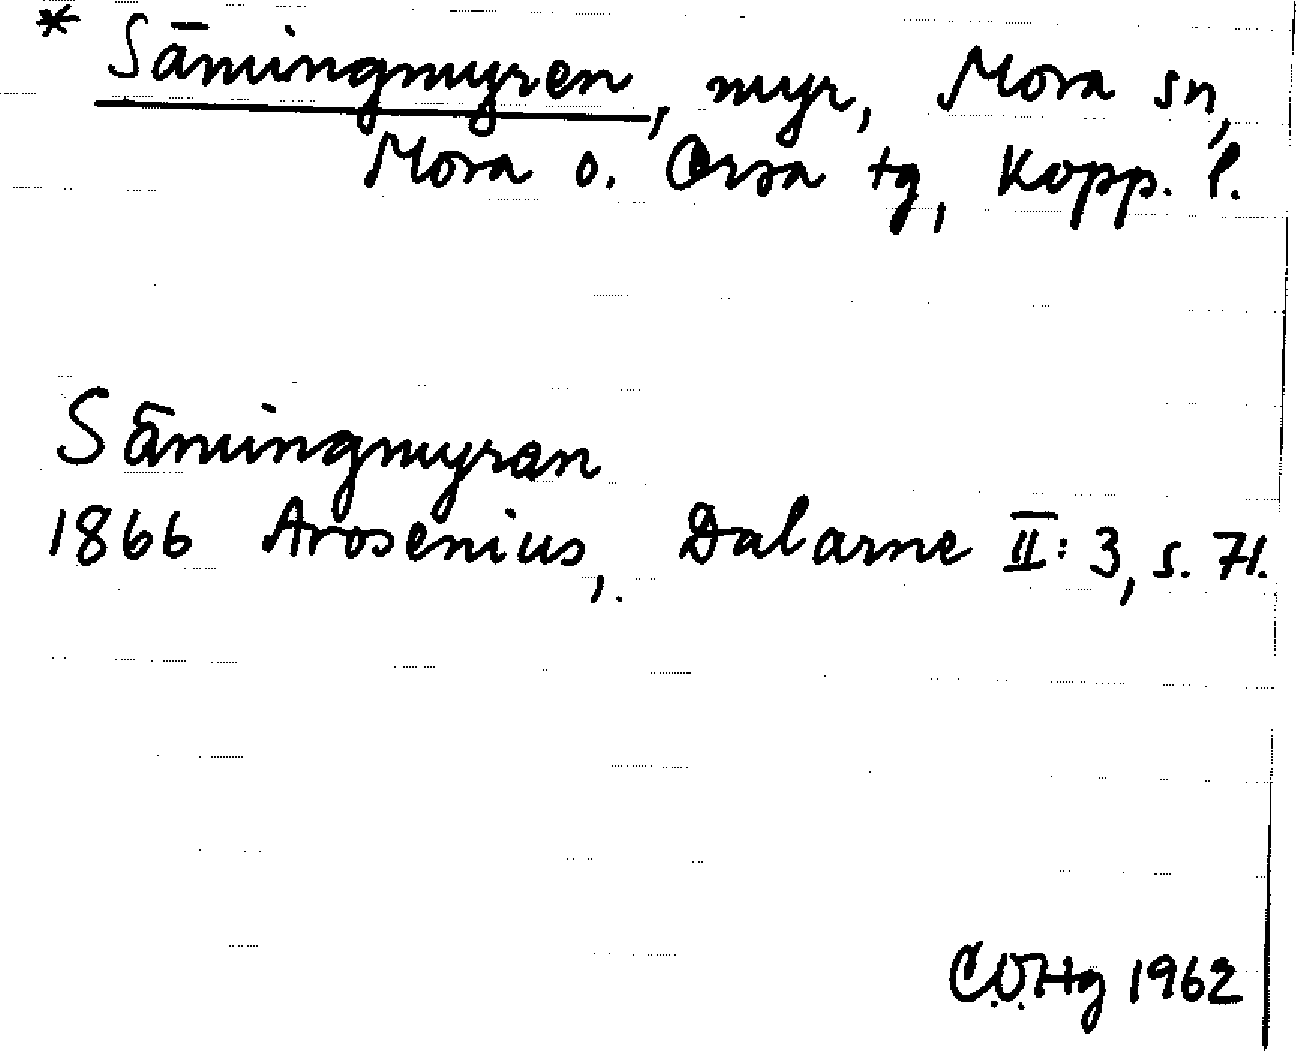 * Sämingmyren, myr, Mora sn,
Mora o. Orsa tg, Kopp. l.
Sämingmyran
1866 Arosenius, Dalarne II: 3, s. 71.
C.O.Hg 1962